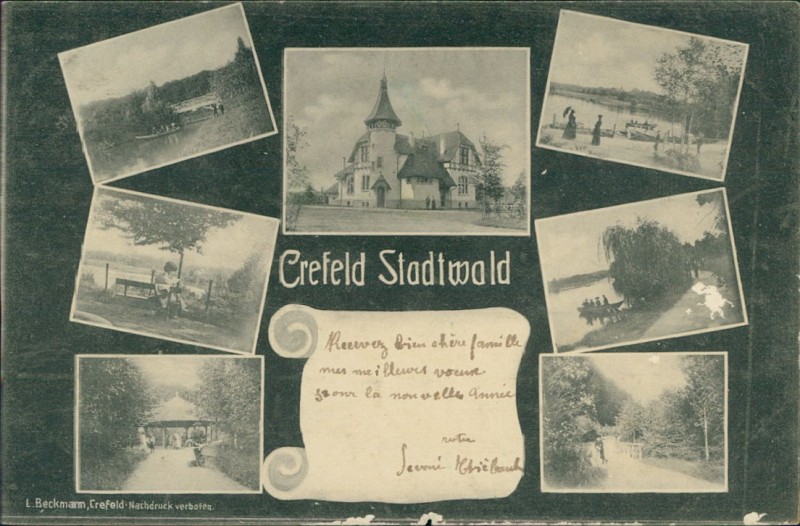 Crefeld Stadtwald
Recevez bien chère famille
mes meilleurs voeux
pour la nouvelle Année
votre
L. Beckmann, Crefeld - Nachdruck verboten.